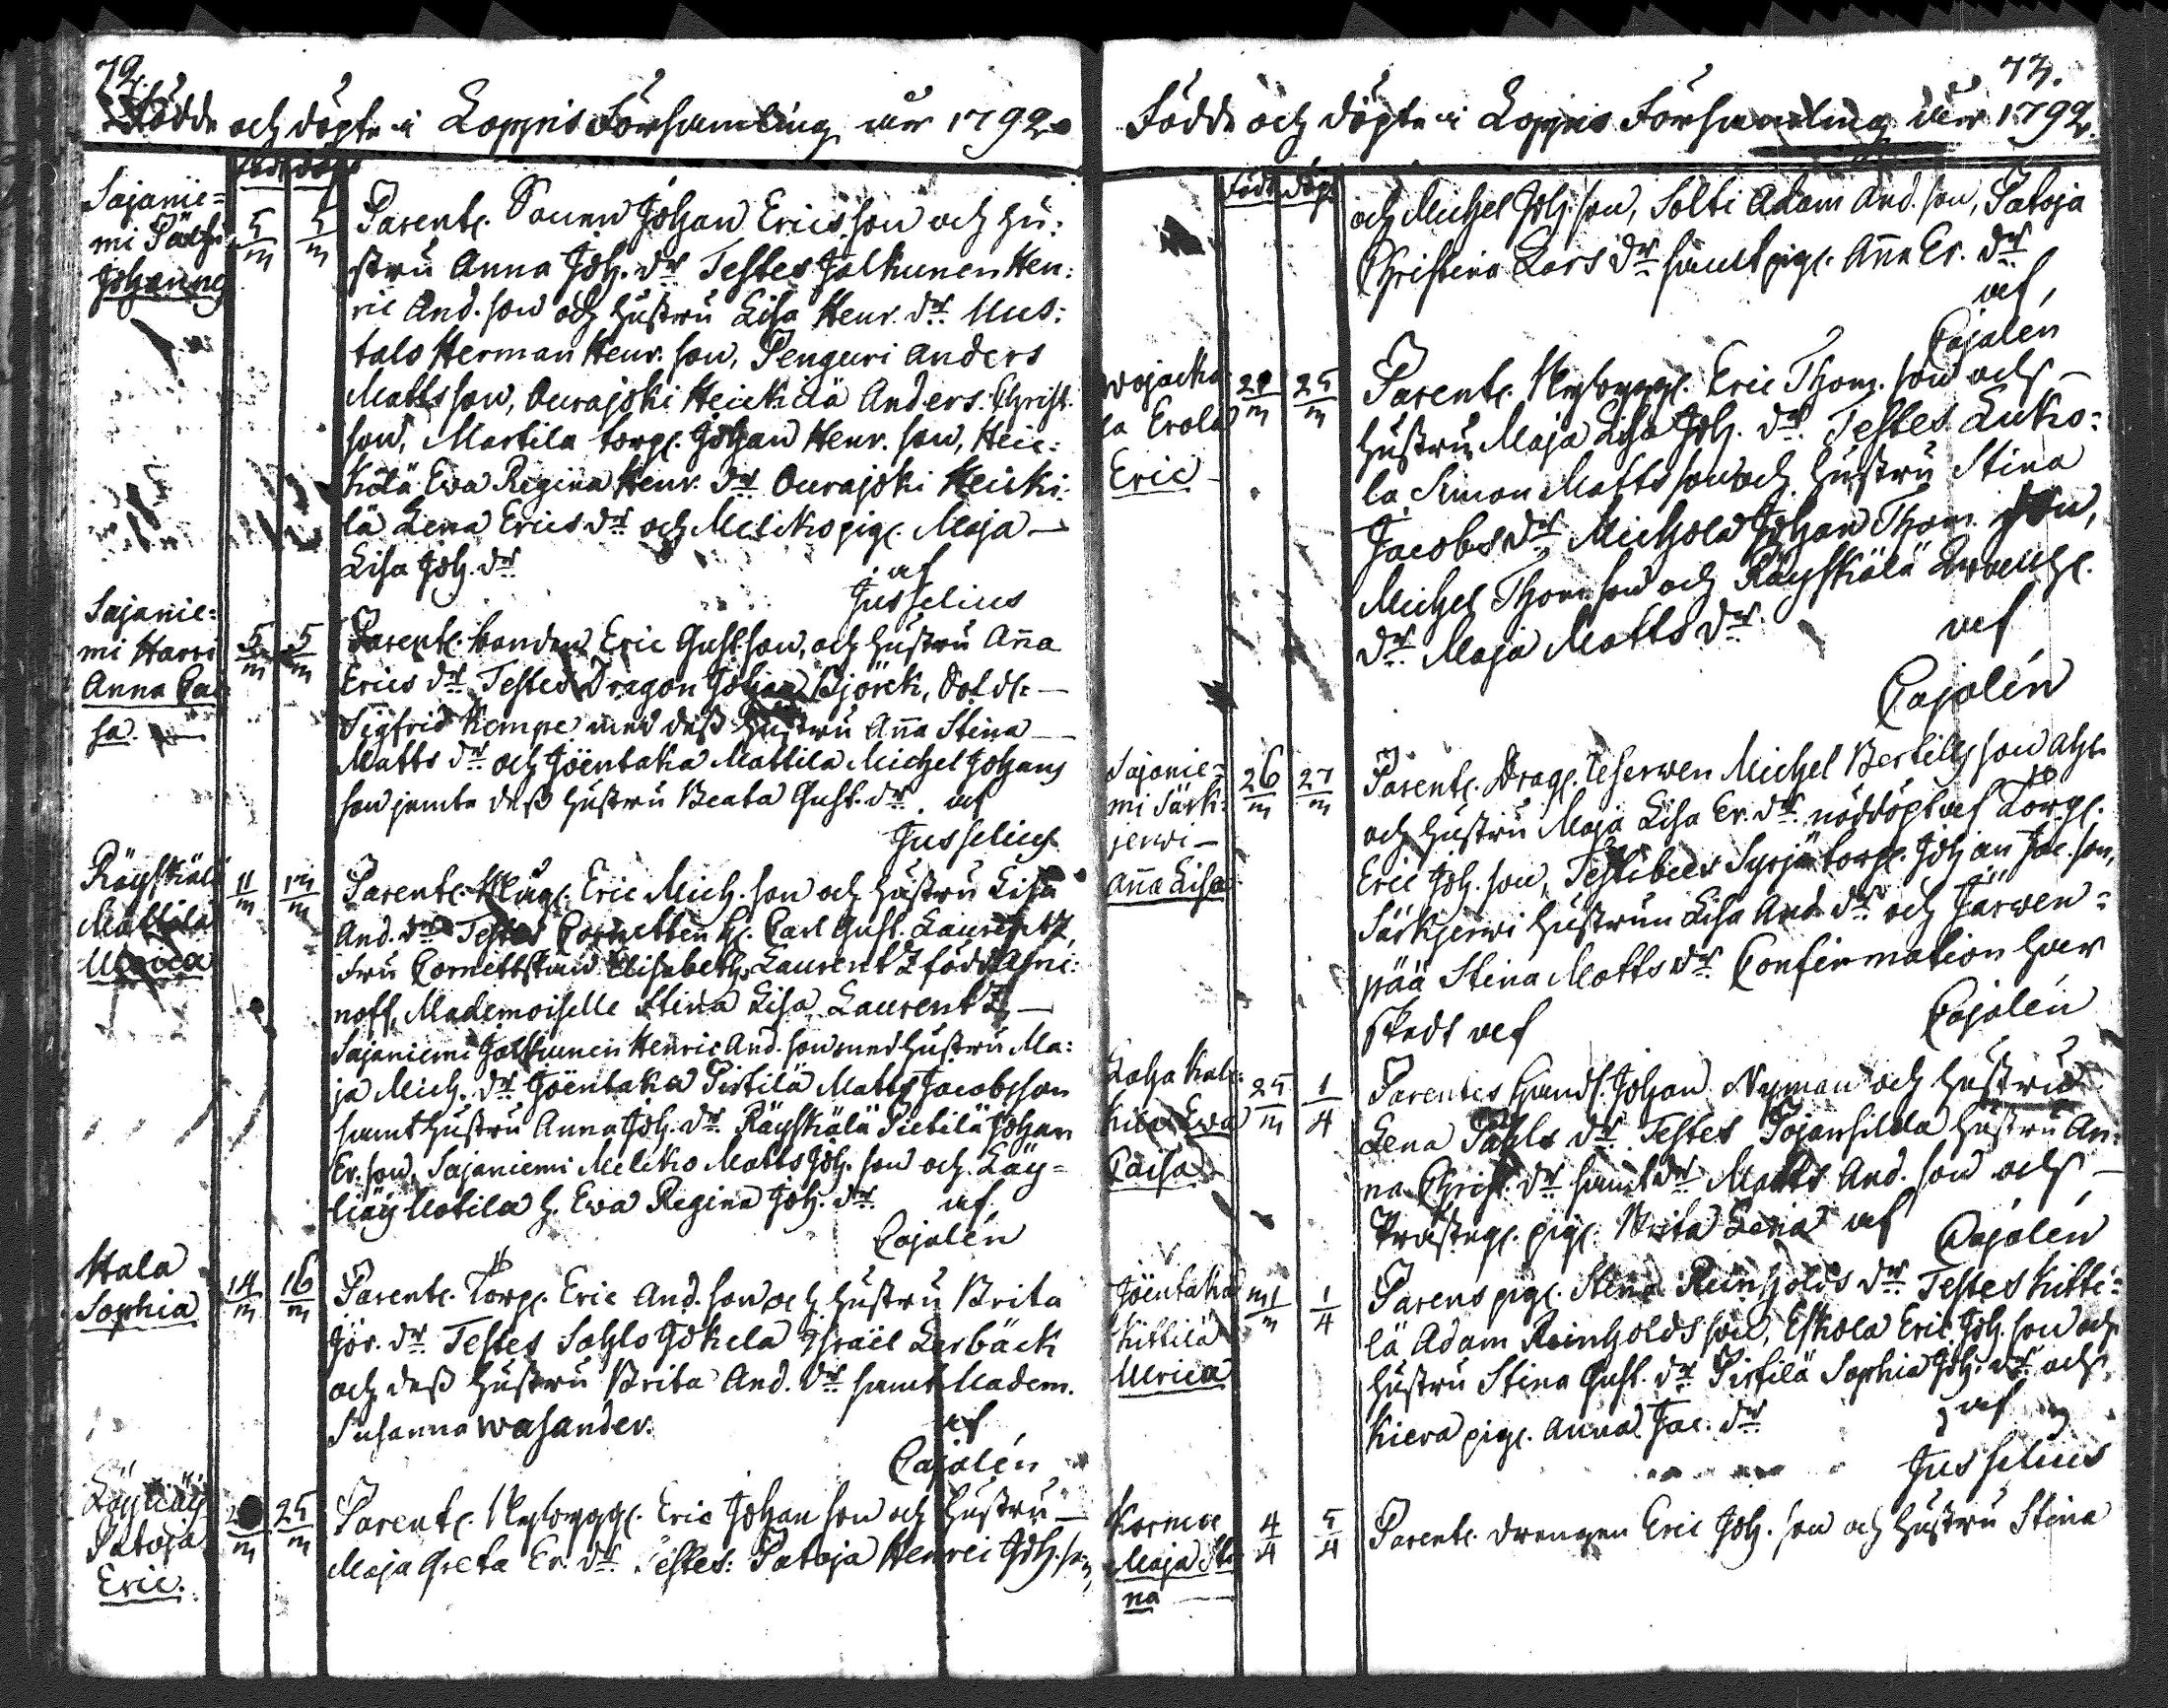 72.
Födde och döpte i Loppis Församling år 1792.
född döpt
Sajanie=
mi Pärhi
Johannes
5/m 5/m
Parent: Sonen Johan Ericsson och hu:
stru Anna Joh. dr Testes Jalkunen Hen:
ric And. son och hustru Lisa Henr. dr Uus:
talo Herman Henr. son, Penguri Anders
Mattsson, Ourajoki Heickilä Anders Christ.
son, Martila torp: Johan Henr. son, Heic:
kilä Ewa Regina Henr. dr Ourajoki Heicki:
lä Lena Erics dr och Meliko pig: Maja
Lisa Joh. dr
af
Jusselius
Sajanie:
mi Harri
Anna Cai:
sa
5/m 5/m
Parent: bonden Eric Gust. son, och hustru Aña
Erics dr Testes Dragon Johan Björck, Sold:
Sigfrid Kempe med dess hustru Aña Stina
Matts dr och Jöentaka Mattila Michel Johans
son jemte dess hustru Beata Gust. dr af
Jusselius
Räyskälä
Mattila
Ulrica
11/m 13/m
Parent: Eric Mich. son och hustru Lisa
And. dr Testes Cornetten H. Carl Gust. Laurentz,
Fru Cornettskan Elisabeth Laurentz född Agri:
noff, Mademoiselle Stina Lisa Laurentz
Sajaniemi Jalkunen Henric And. son med hustru Ma:
ja Mich. dr Jöentaka Pirtilä Matts Jacobsson
samt hustru Anna Joh. dr Räyskälä Pietilä Johan
Er. son, Sajaniemi Meliko Matts Joh. son och Läy=
liäy Uotila h. Ewa Regina Joh. dr af
Cajalén
Hala
Sophia
14/m 16/m
Parent: Torp: Eric And. son och hustru Brita
Jör. dr Testes Sahlo Jokela Israël Lerbäck
och dess hustru Brita And. dr samt Madem.
Susanna Wasander.
af
Cajalén
Läyliäy
Patoja
Eric.
25/m
Parent: Nybygg: Eric Johan son och hustru
Maja Greta Er. dr Testes: Patoja Henric Joh. son,
73.
Födde och döpte i Loppis Församling år 1792.
född döpt
och Michel Joh. son, Solti Adam And. son, Patoja
Christina Lars dr samt pig: Aña Er. dr
af,
Cajalén
Wojacka
la Erola
Eric
25/m
Parent: Nybygg: Eric Thom. son och
hustru Maja Lisa Joh. dr Testes Luko:
la Simon Mattsson och hustru Stina
Jacobs dr Michola Johan Thom. son,
Michel Thomson och Räyskälä
dr Maja Matts dr af
Cajalén
Sajanie=
mi Särk:
jerwi
Aña Lisa
26/m 27/m
Parent: Drag: reserven Michel Bertills son
och hustru Maja Lisa Er. dr nöddöpt af Torp:
Eric Joh. son, Testibus Syrjä torp: Johan Jac. son,
Särkjerwi hustrun Lisa And. dr och Järwen=
pää Stina Matts dr Confirmation har
skedt af
Cajalén
Ewa
Caisa
25/m 1/4
Parentes Johan Nyman och hustru
Lena Pahls dr Testes Pojansilda hustru An:
na Christ. dr samt dr Matts And. son och
Prästeg: pig: Brita Lena af
Cajalén
Jöentaka
Kittilä
Ulrica
31/m 1/4
Parens pig: Stina Reinholds dr Testes Kitti:
lä Adam Reinholds son, Eskola Eric Joh. son och
hustru Stina Gust. dr Pirtilä Sophia Joh. dr och
Kiera pig: Anna Jac. dr
af
Jusselius
Kormu
Maja Sti
na
4/4 5/4
Parent: drengen Eric Joh. son och hustru Stina